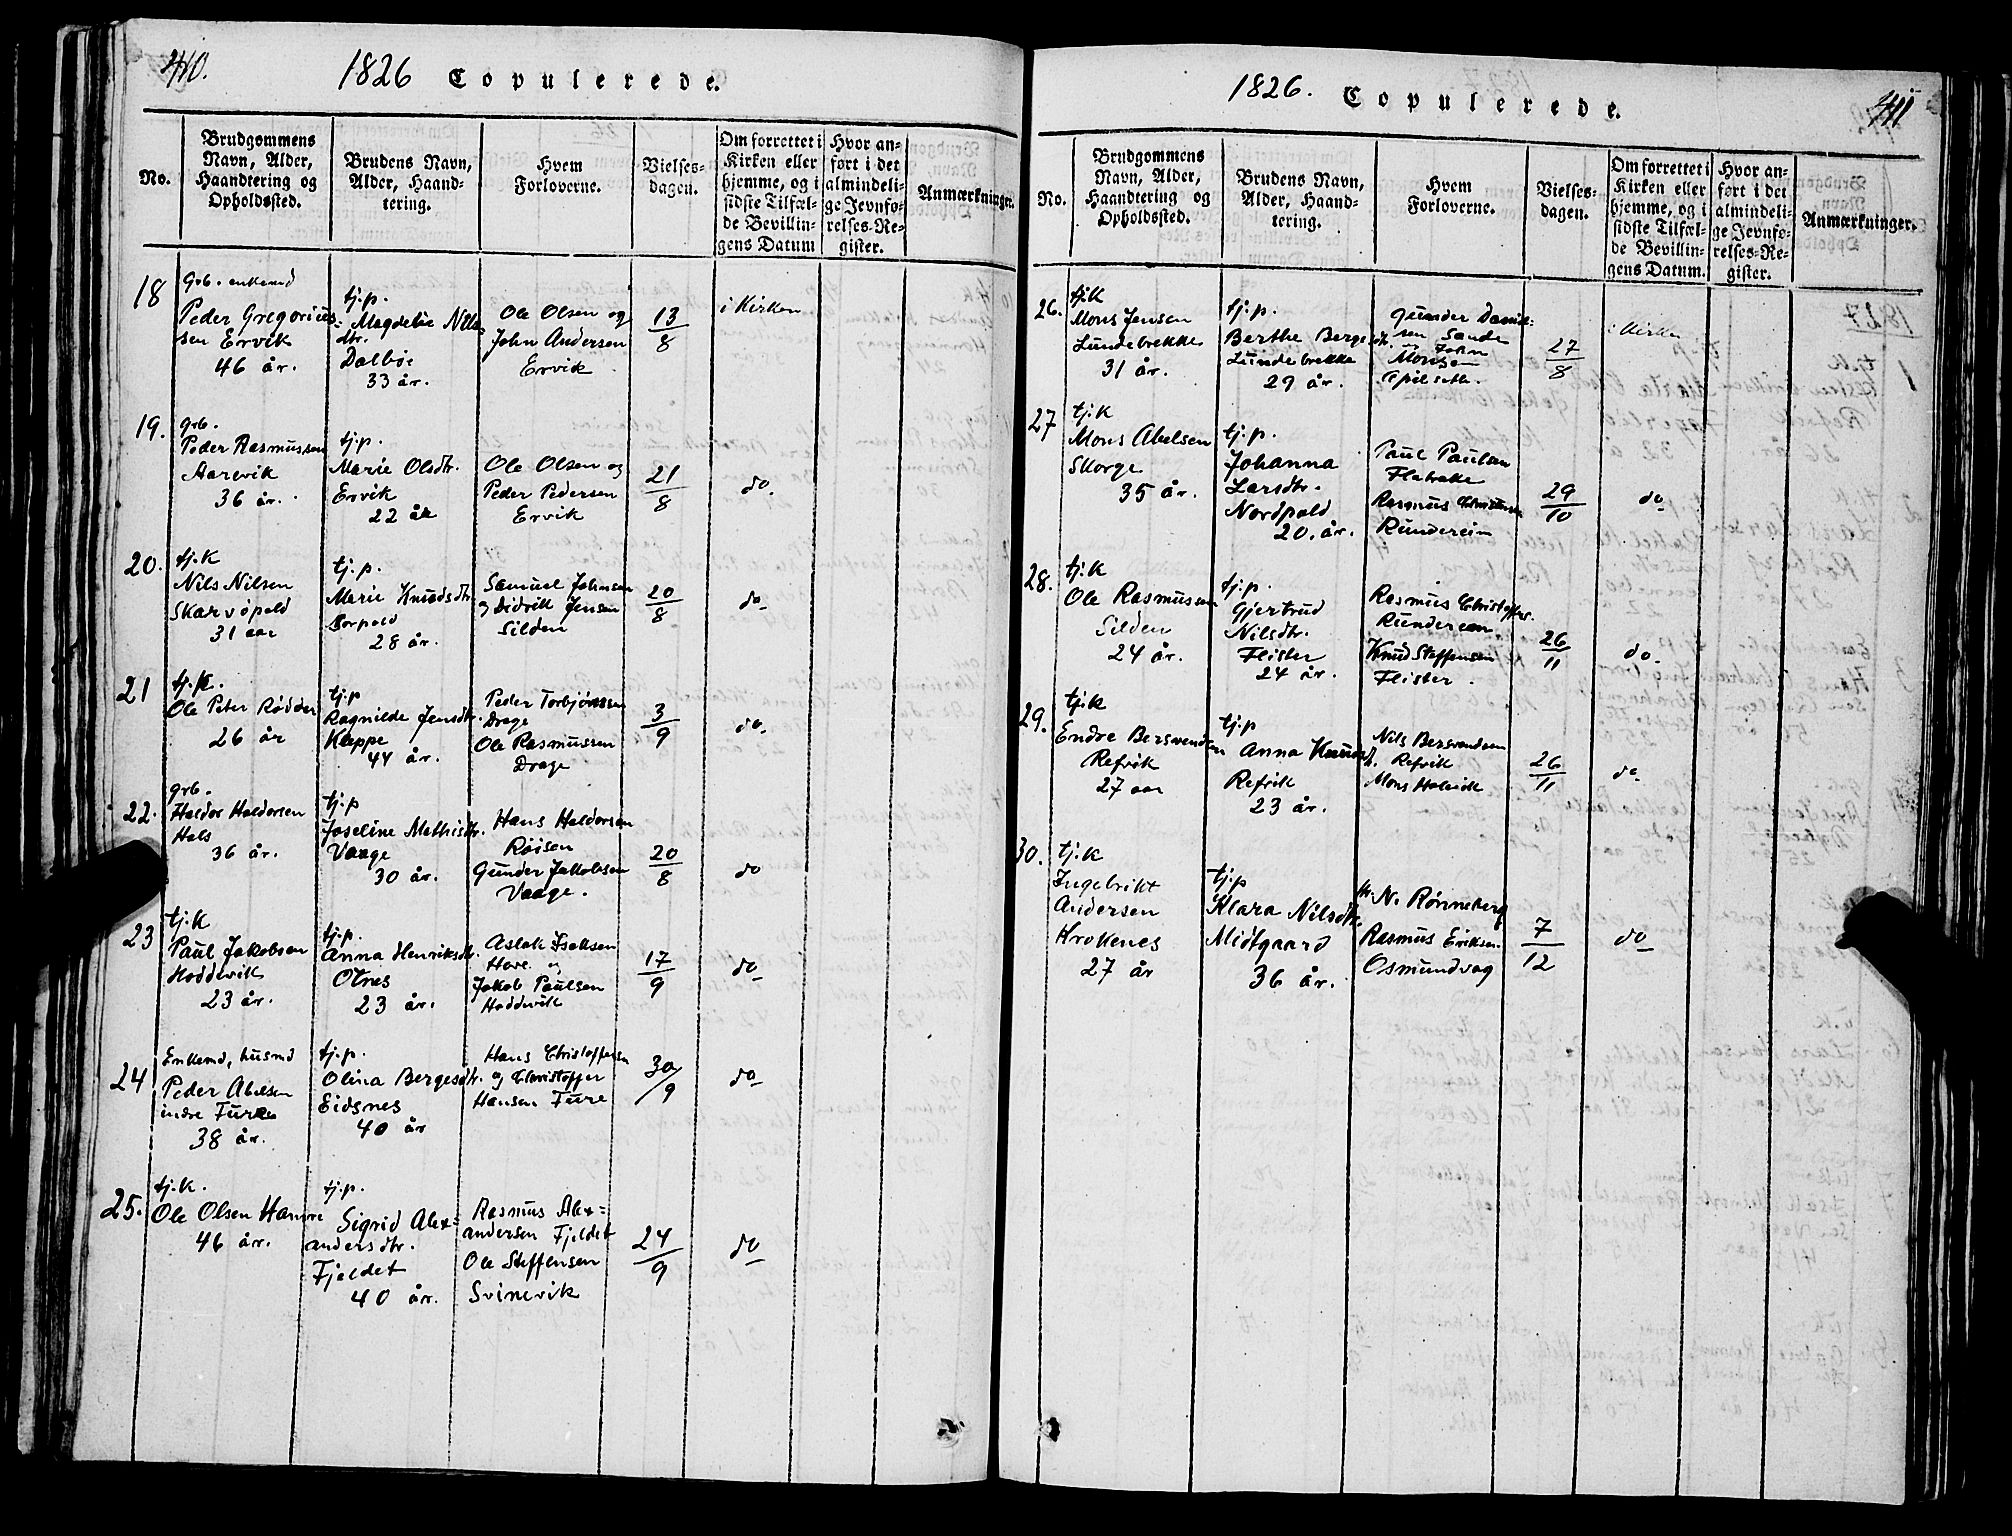 410.
1826 Copulerede.
No.
Brudgommens
Navn, Alder,
Haandtering og
Opholdssted.
Brudens Navn,
Alder, Haand-
tering.
Hvem
Forloverne.
Vielses-
dagen.
Om forrettet i
Kirken eller
hjemme, og i
sidste Tilfæl-
de Bevillin-
gens Datum
Hvor an-
ført i det
almindeli-
ge Jevnfø-
relses-Re-
gister.
Anmærkninger.
18
Grb. enkemd
Peder Gregorius-
sen Ervik
46 år.
tj.p.
Magdelie Nils
dtr.
Dalbøe
33 år.
Ole Olsen og
John Andersen
Ervik
13
8
i Kirken
19.
grb.
Peder Rasmussen
Aarevik
36 år.
tj.p.
Marie Olsdtr.
Ervik
22 år
Ole Olsen og
Peder Pedersen
Ervik
21
8
do.
20.
tj.k
Nils Nilsen
Skarvøpold
31 aar
tj.p.
Marie Knudsdtr.
Borpold
28 år.
Samuel Johnsen
og Didrik Jensen
Silden
20
8
do
21
tj.k.
Ole Peter Rødder
26 år
tj.p
Ragnilde Jensdtr.
Kleppe
44 år.
Peder Torbjørnsen
Drage
Ole Rasmussen
Drage
3
9
do.
22.
grb.
Haldor Haldorsen
Hals
36 år.
tj.p
Joseline Mathisdtr.
Vaage
30 år.
Hans Haldorsen
Røisen
Gunder Jakobsen
Vaage.
20
8
do
23
tj.k
Paul Jakobsen
Hoddevik
23 år.
tj.p.
Anna Henriksdtr.
Otnes
23 år.
Aslak Isaksen
Hove og
Jakob Paulsen
Hoddevik
17
9
do
24
Enkemd, husmd
Peder Abelsen
indre Furee
38 år.
tj.p.
Olina Bergesdtr.
Eidsnes
40 år
Hans Christoffersen
og Christoffer
Hansen Fure
30
9
do
25.
tj.k.
Ole Olsen Hamre
46 år.
tj.p.
Sigrid Alex=
andersdtr.
Fjeldet
40 år.
Rasmus Alex=
andersen Fjeldet
Ole Steffensen
Svinevik
24
9
do
1826. Copulerede.
411
No.
Brudgommens
Navn, Alder,
Haandtering og
Opholdssted.
Brudens Navn,
Alder, Haand-
tering.
Hvem
Forloverne.
Vielses-
dagen.
Om forrettet i
Kirken eller
hjemme, og i
sidste Tilfæl-
de Bevillin-
gens Datum.
Hvor an-
ført i det
almindeli-
ge Jevnfø-
relses-Re-
gister.
Anmærkninger.
26.
tj.k
Mons Jensen
Lundebrekke
31 år.
tj.p.
Berthe Berges
Lundebrekke
29 år.
Gunder Daniel=
sen Sande
John
Monsen
27
8
i Kirken
27
tj.k
Mons Abelsen
Skorge
35 år.
tj.p.
Johanna
Larsdtr.
Nordpold
20. år.
Paul Paulsen
Flatrake
Rasmus Christensen
Rundereim
29
10
do
28.
tj.k
Ole Rasmussen
Silden
24 år.
tj.p.
Gjertrud
Nilsdtr.
Flister
24 år.
Rasmus Christoffers.
Rundereim
Knud Steffensen
Flister.
26
11
do.
29.
tj.k
Endre Bersvendsen
Refvik
27 aar
tj.p
Anna Knuds
Refvik
23 år.
Nils Bersvendsen
Refvik
Mons Halvik
26
11
do
30.
tj.k
Ingebrikt
Andersen
Krokenes
27 år
tj.p
Klara Nilsdtr.
Midtgaard
36 år.
hr. N. Rønneberg
Rasmus Eriksen
Osmundvag
7
12
do